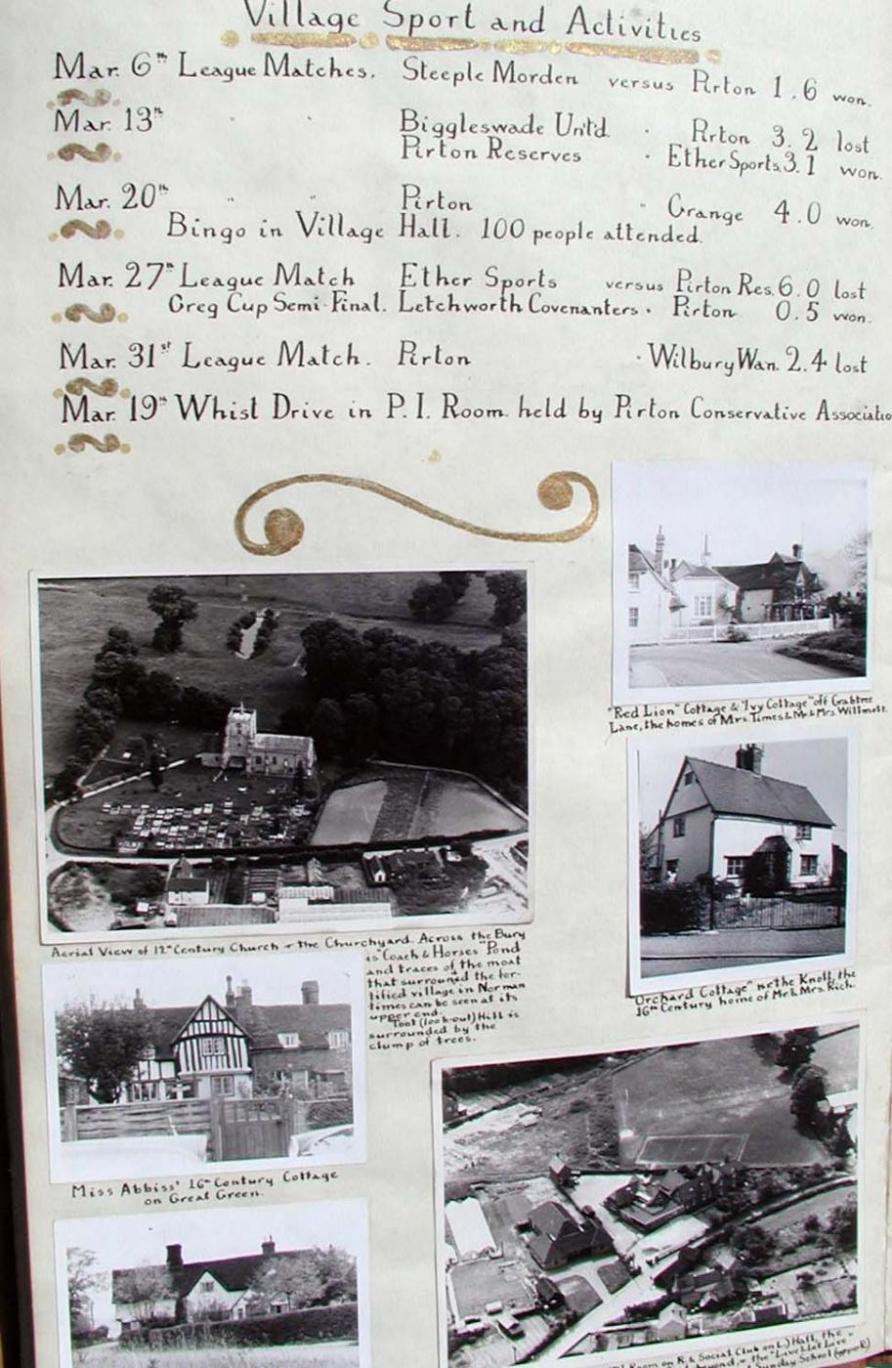 Village Sport and Activities
Mar. 6th League Matches. Steeple Morden versus Pirton 1.6 won.
Mar. 13th " " Biggleswade Untd. · Pirton 3.2 lost
Pirton Reserves · Ether Sports 3.1 won.
Mar. 20th " " Pirton " Grange 4.0 won.
Bingo in Village Hall. 100 people attended.
Mar. 27th League Match Ether Sports versus Pirton Res. 6.0 lost
Greg Cup Semi-Final. Letchworth Covenanters · Pirton 0.5 won.
Mar. 31st League Match. Pirton · Wilbury Wan. 2.4 lost
Mar. 19th Whist Drive in P.I. Room held by Pirton Conservative Associatio
"Red Lion" Cottage & "Ivy Cottage" off Crabtree
Lane, the homes of Mrs. Times & Mr. & Mrs. Willmott.
"Orchard Cottage" nr. the Knoll, the
16th Century home of Mr. & Mrs. Rich.
Aerial View of 12th Century Church + the Churchyard. Across the Bury
is "Coach & Horses" Pond
and traces of the moat
that surrouned the for-
tified village in Norman
times can be seen at its
upper end.
Toot (look-out) Hill is
surrounded by the
clump of trees.
Miss Abbiss' 16th Century Cottage
on Great Green.
Room on R. & Social Club on L.) Hall, the
beyond, + the "Live & Let Live"
Sunday School (upper R)